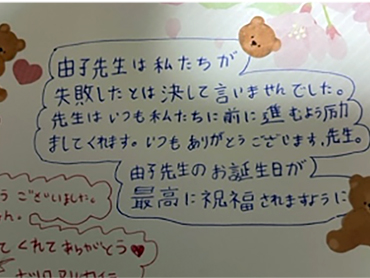 由子先生は私たちが
失敗したとは決して言いませんでした。
先生はいつも私たちに前に進むよう励
ましてくれます。いつもありがとうございます、先生。
由子先生のお誕生日が
最高に祝福されますように
うございました。
ん。
てくれてありがとう♥